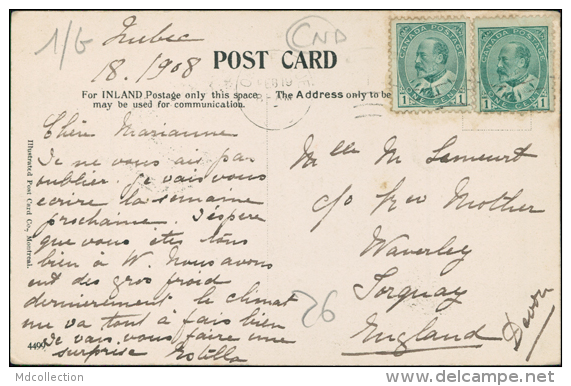 1/6
Quebec
18. 1908
CND
POST CARD
For INLAND Postage only this space
may be used for communication.
The Address only to be
CANADA POSTAGE
1 ONE CENT 1
CANADA POSTAGE
1 ONE CENT 1
Chère Marianne
Je ne vous ai pas
oublier. Je vais vous
écrire la semaine
prochaine. J'espère
que vous êtes tous
bien à W. Nous avons
ont des gros froid
dernièrement le climat
me va tout à fais bien
Je vais vous faire une
surprise Estella
Mlle M
c/o her Mother
Waverley
Torquay
England
Devon
26
Illustrated Post Card Co., Montreal.
4490
MDcollection
www.delcampe.net